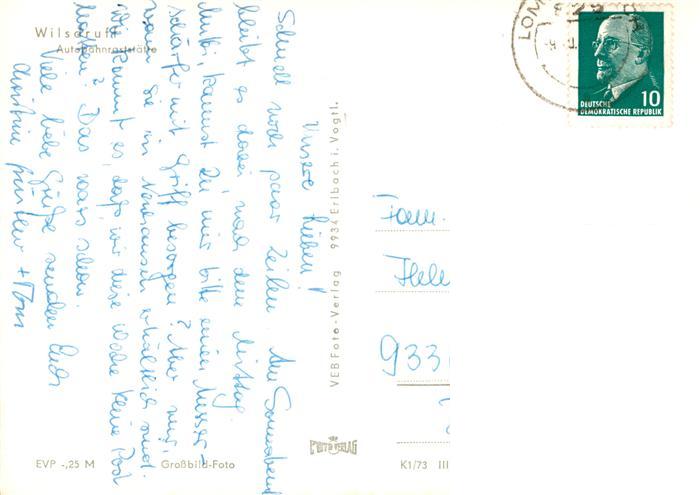 Wilsdruff
Autobahnraststätte
Unsere Lieben!
Schnell noch paar Zeilen. Am Sonnabend
bleibt es dabei nach dem Mittag.
Mutti, kannst Du mir bitte einen Messer-
schärfer mit Griff besorgen? Aber nur,
wenn Sie in Neuhausen erhältlich sind.
Wie kommt es, daß wir diese Woche keine Post
haben? Das wars schon.
Viele liebe Grüße senden Euch
Christine, Günter + Tom
VEB Foto-Verlag 9934 Erlbach i. Vogtl.
EVP -,25 M
Großbild-Foto
FOTO VERLAG
K1/73 III
LOM
DEUTSCHE
DEMOKRATISCHE REPUBLIK
10
Fam.
933